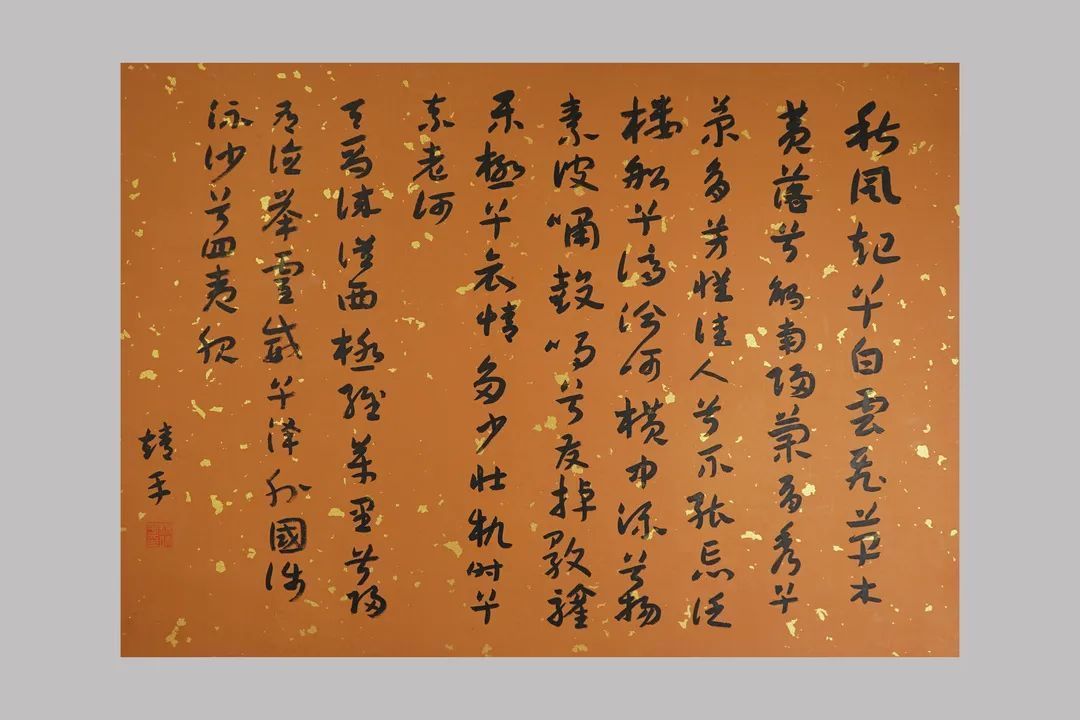 秋風起兮白雲飛草木
黃落兮雁南歸蘭有秀兮
菊有芳懷佳人兮不能忘泛
樓船兮濟汾河橫中流兮揚
素波嘯鼓鳴兮發棹歌歡
樂極兮哀情多少壯幾時兮
奈老何
天馬徠從西極經萬里兮歸
有德承靈威兮降外國涉
流沙兮四夷服